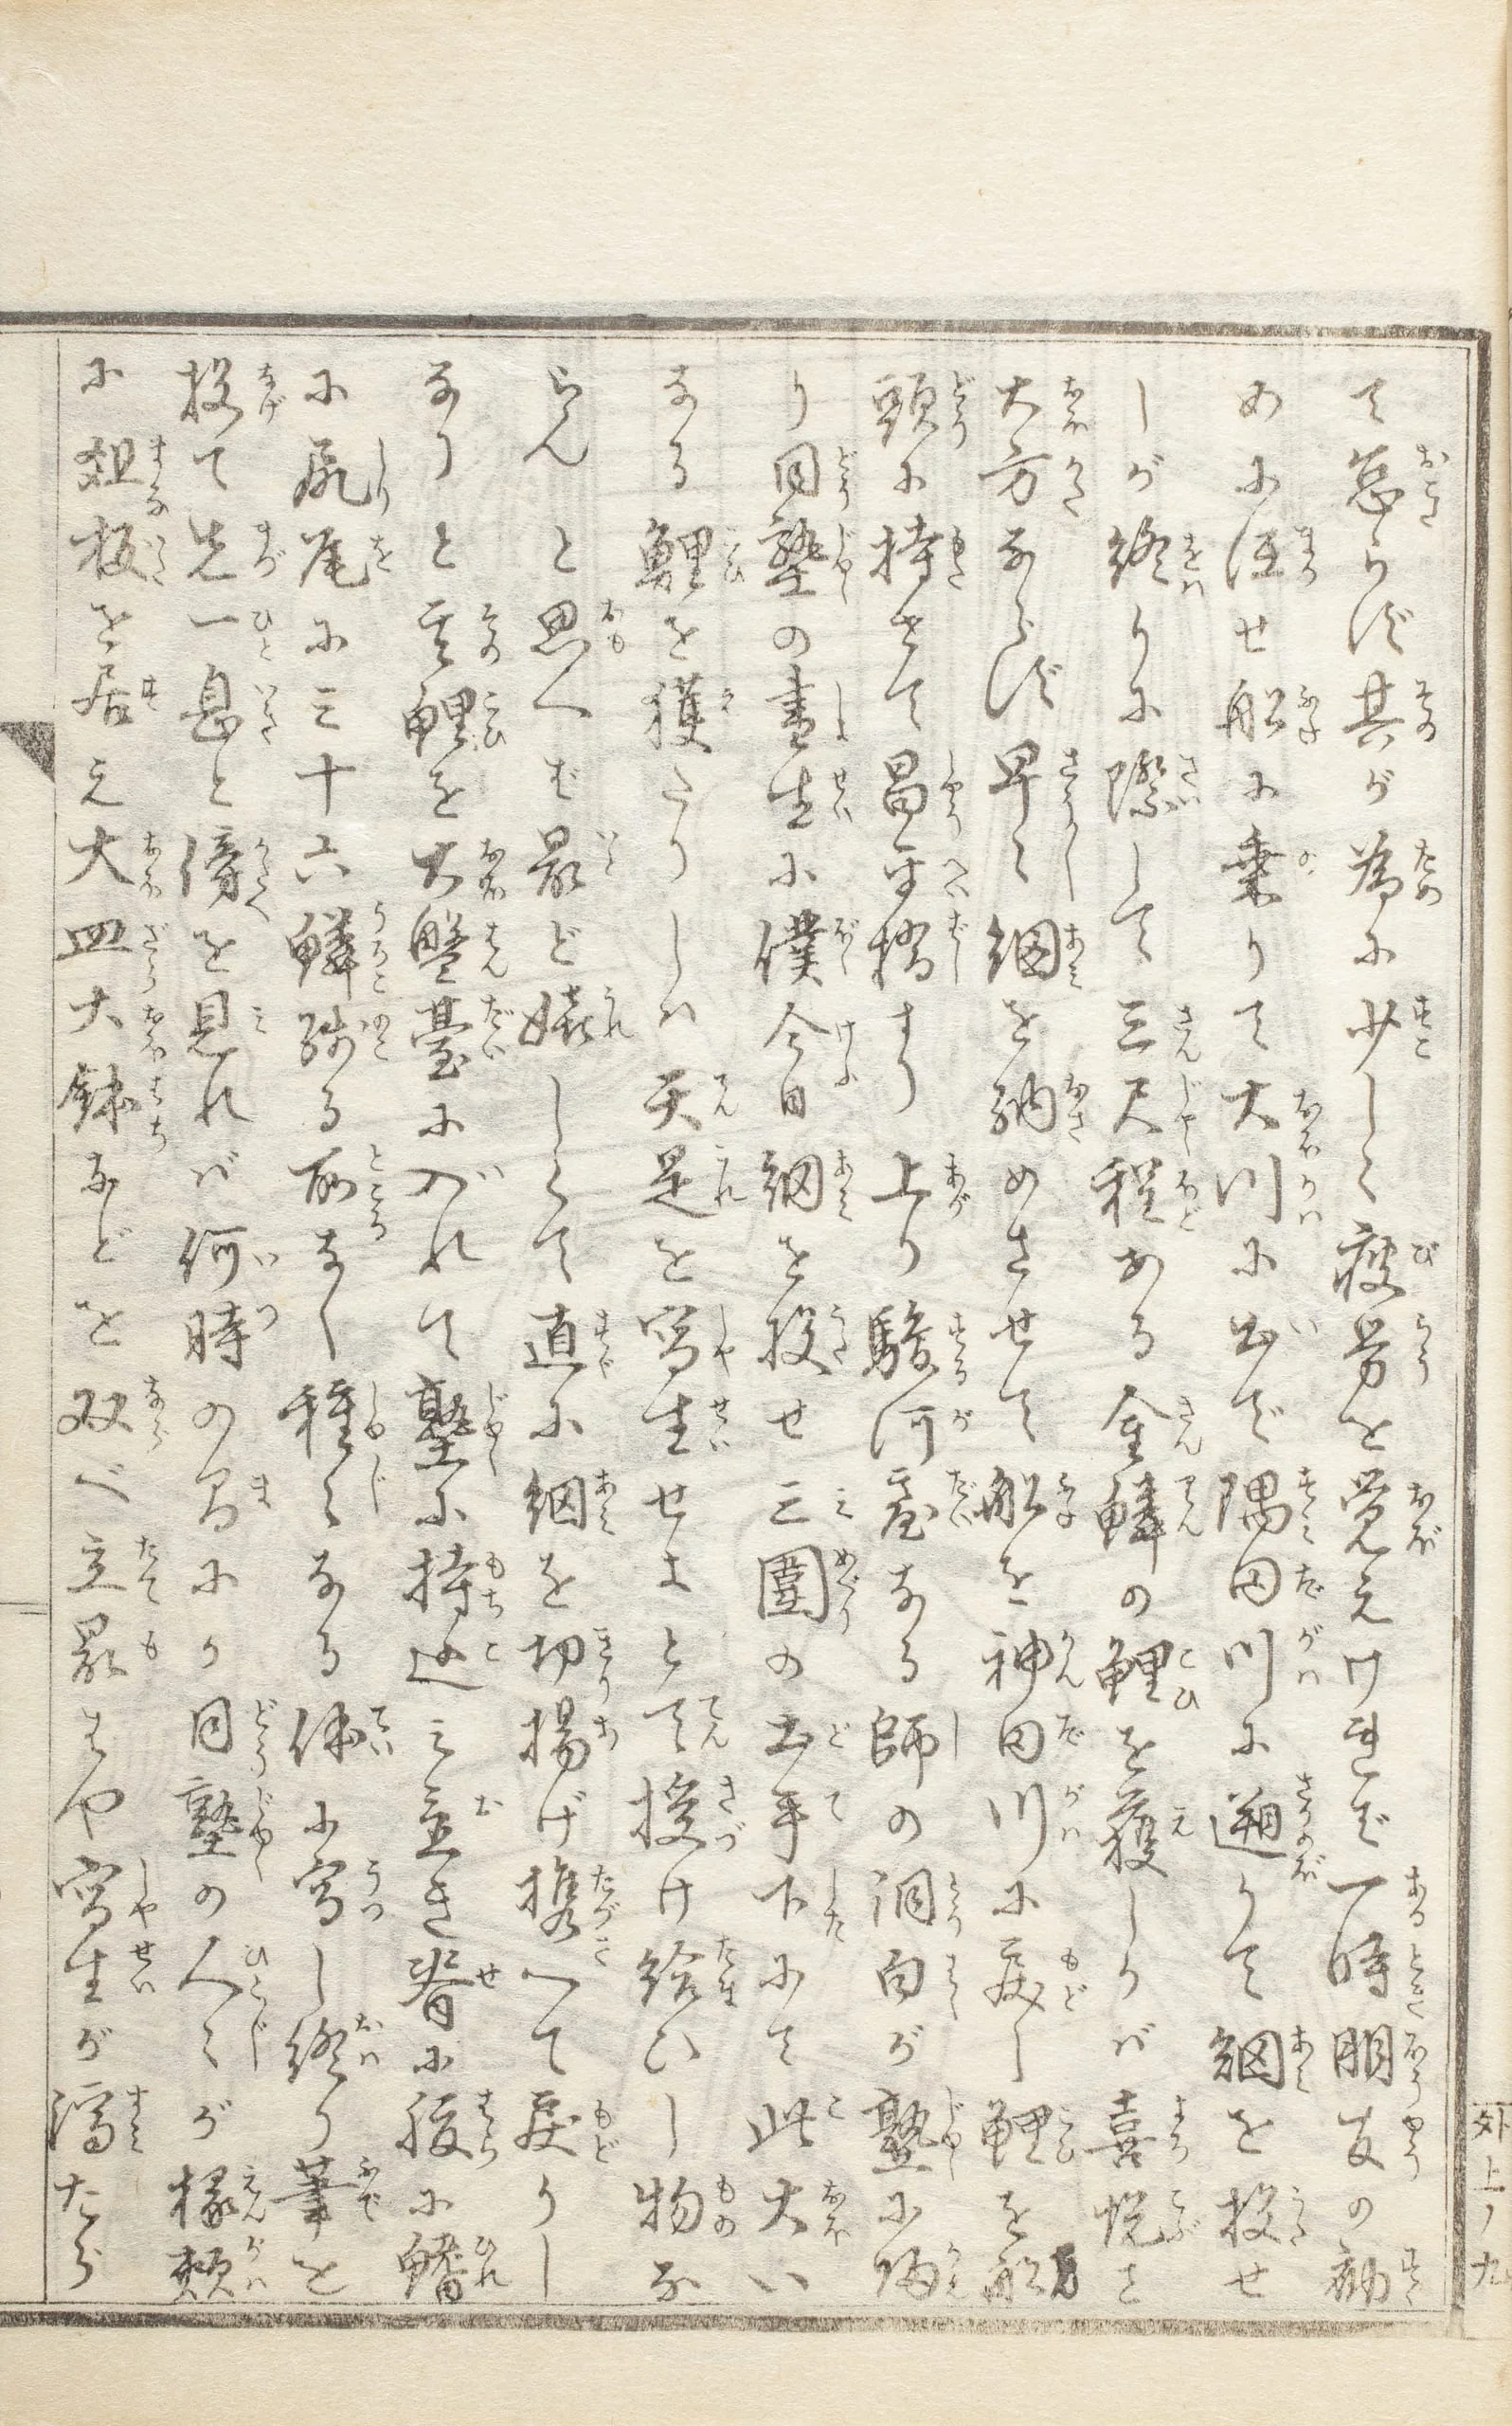 て怠らず其が為に少しく疲労を覚えけれど一時朋友の勧
めに任せ船に乗りて大川に出で隅田川に遡りて網を投せ
しが終りに際して三尺程ある金鱗の鯉を獲しかば喜悦こと
大方ならず早々網を納めさせて船を神田川に戻し鯉を船
頭に持させて昌平橋より上り駿河臺なる師の洞白が塾に帰
り同塾の書生に僕今日網を投せ三圍の土手下にて此大い
なる鯉を獲たりしハ天是を寫生せよとて授け給ひし物な
らんと思へば最ど嬉しくて直に網を切揚げ携へて戻りし
なりと云鯉を大盤臺に入れて塾に持込み置き脊に腹に鰭
に尻尾に三十六鱗残る所なく種々なる体に寫し終り筆を
投て先一息と傍を見れば何時の間にか同塾の人々が椽頬
に俎板を居え大皿大鉢などを双べ立最はや寫生が濟たら
外上ノ九